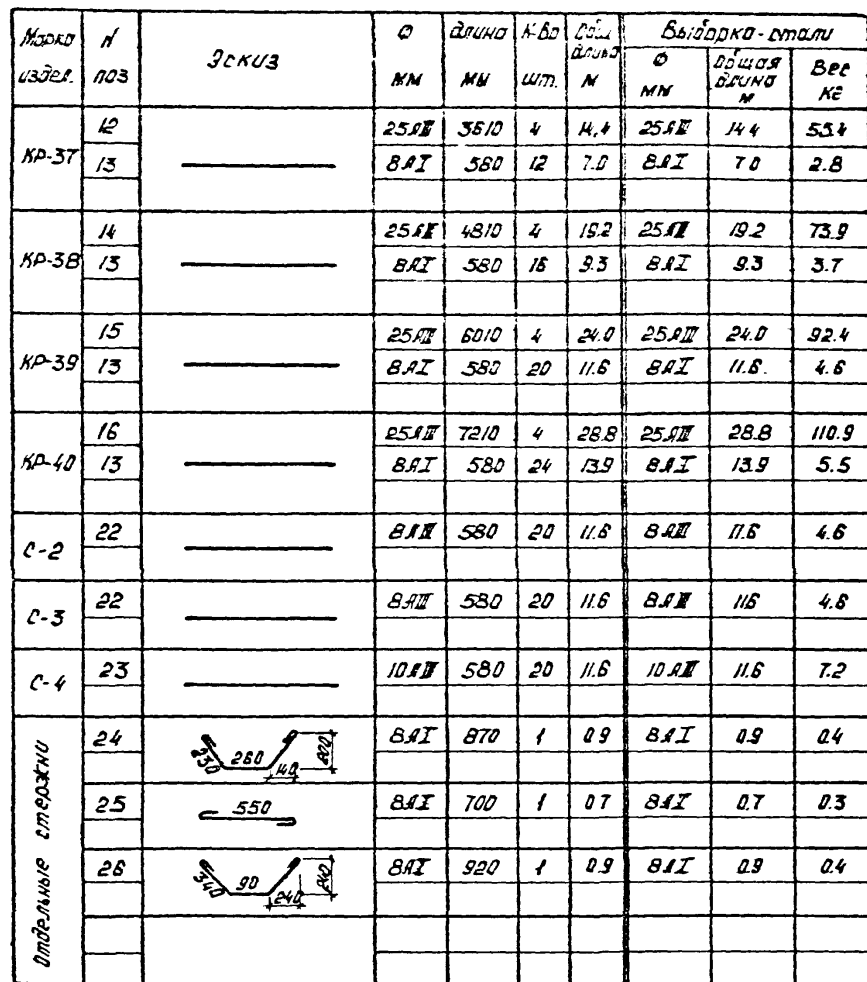 Марка издел. N поз Эскиз Ф мм длина мм К-во шт. Общ длина м Выборка-стали
Ф мм общая длина м Вес кг
КР-37 12 25АIII 3610 4 14,4 25АIII 14 4 55.4
13 8АI 580 12 7.0 8АI 7 0 2.8
КР-38 14 25АIII 4810 4 19.2 25АIII 19.2 73.9
13 8АI 580 16 9.3 8АI 9.3 3.7
КР-39 15 25АIII 6010 4 24.0 25АIII 24.0 92.4
13 8АI 580 20 11.6 8АI 11.6. 4.6
КР-40 16 25АIII 7210 4 28.8 25АIII 28.8 110.9
13 8АI 580 24 13.9 8АI 13.9 5.5
С-2 22 8АIII 580 20 11.6 8АIII 11.6 4.6
С-3 22 8АIII 580 20 11.6 8АIII 11.6 4.6
С-4 23 10АIII 580 20 11.6 10АIII 11.6 7.2
Отдельные стержни
24 230 260 140 200 8АI 870 1 0.9 8АI 0.9 0.4
25 550 8АI 700 1 0.7 8АI 0.7 0.3
26 340 90 240 240 8АI 920 1 0.9 8АI 0.9 0.4